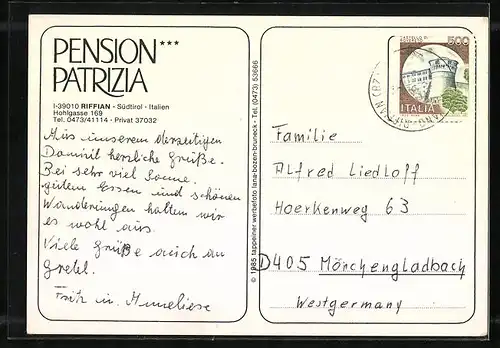 PENSION***
PATRIZIA
I-39010 RIFFIAN - Südtirol - Italien
Hohlgasse 169
Tel. 0473/41114 · Privat 37032
Aus unserem derzeitigen
Domizil herzliche Grüße.
Bei sehr viel Sonne,
gutem Essen und schönen
Wanderungen halten wir
es wohl aus.
Viele Grüße auch an
Gretel.
Fritz u. Anneliese
© 1985 tappeiner werbefoto lana-bozen-bruneck - Tel. (0473) 53666
500
ITALIA
Familie
Alfred Liedloff
Hoerkenweg 63
D405 Mönchengladbach
Westgermany